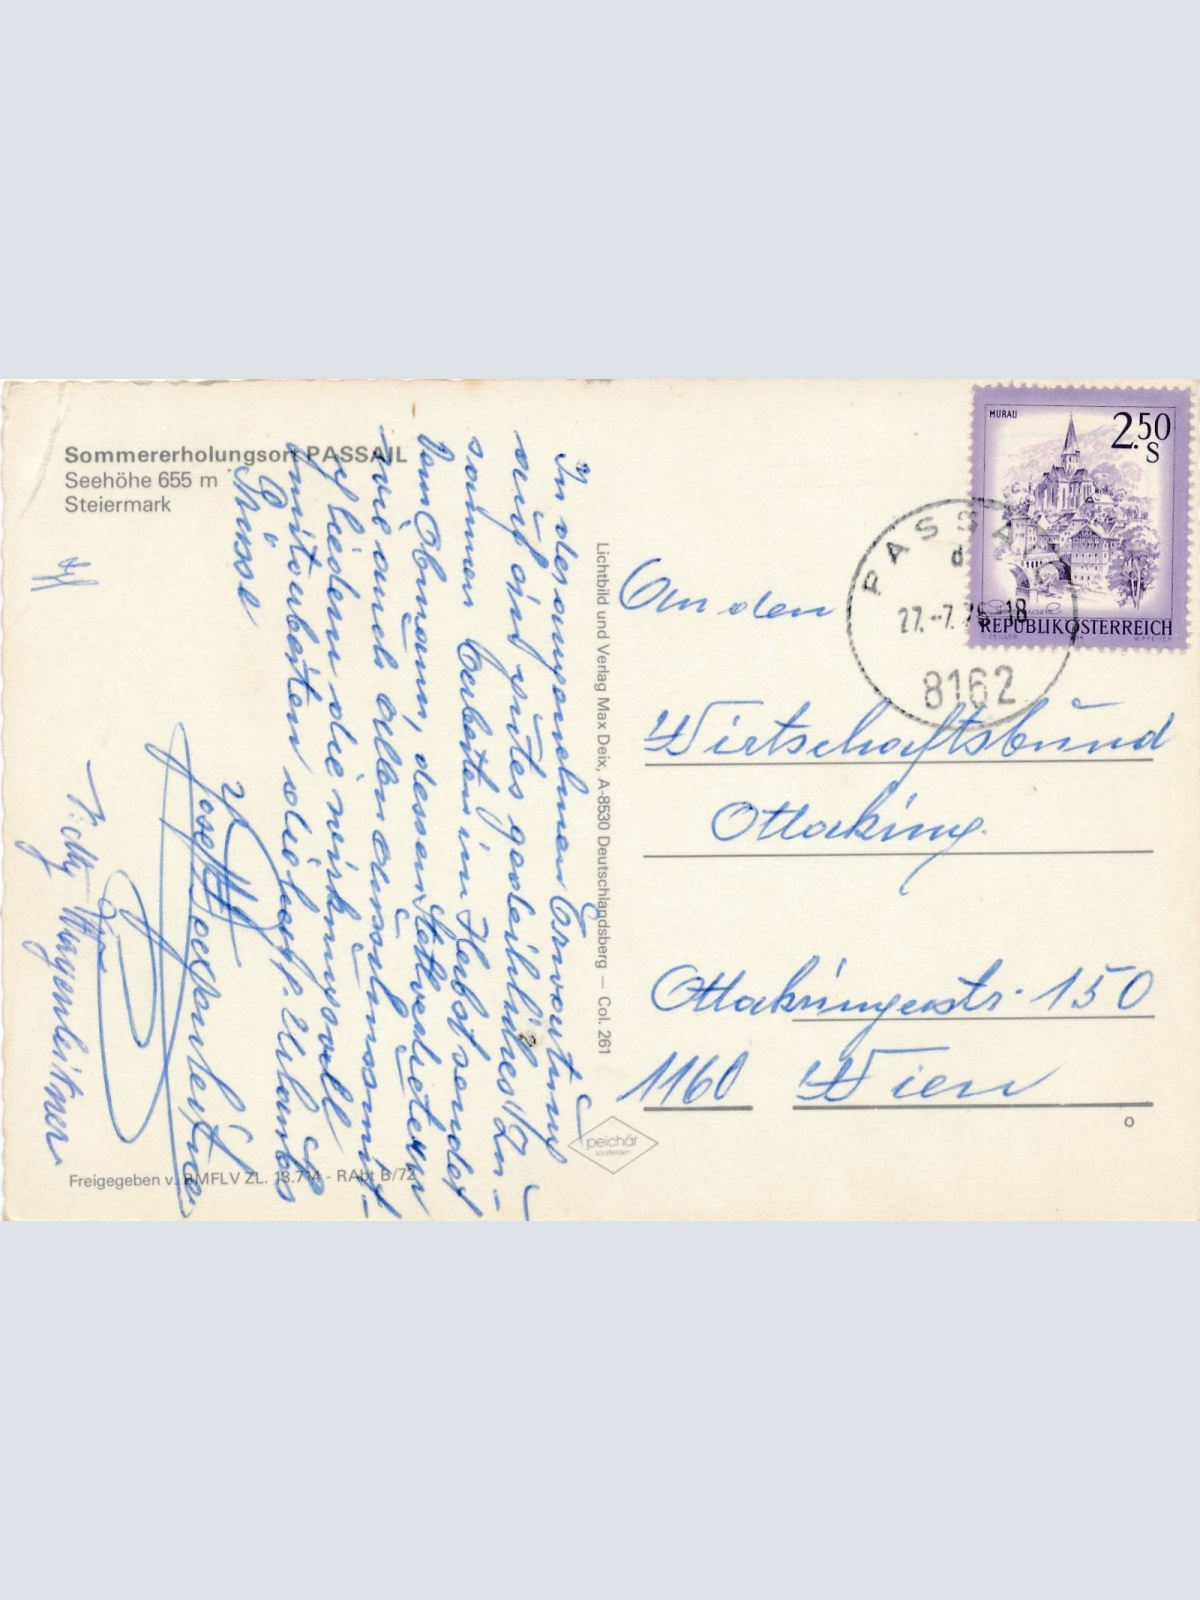 Sommererholungsort PASSAIL
Seehöhe 655 m
Steiermark
In der angenehmen Erwartung
auf ein gutes gedeihliches Zu-
sammen Arbeiten im Herbst sendet
dem Obmann, dessen Stellvertretern
wie auch allen aussch
gliedern die wirkungsvoll
mitarbeiten die herzl. Urlaubs
Grüsse
Josef
Lichtbild und Verlag Max Deix, A-8530 Deutschlandsberg — Col. 261
peichär
saalfelden
Freigegeben v. BMFLV ZL. 13.714 - RAbt B/72
MURAU
2.50
S
REPUBLIK ÖSTERREICH
PASSAIL
d
27.-7.76-18
8162
An den
Wirtschaftsbund
Ottakring.
Ottakringerstr. 150
1160 Wien